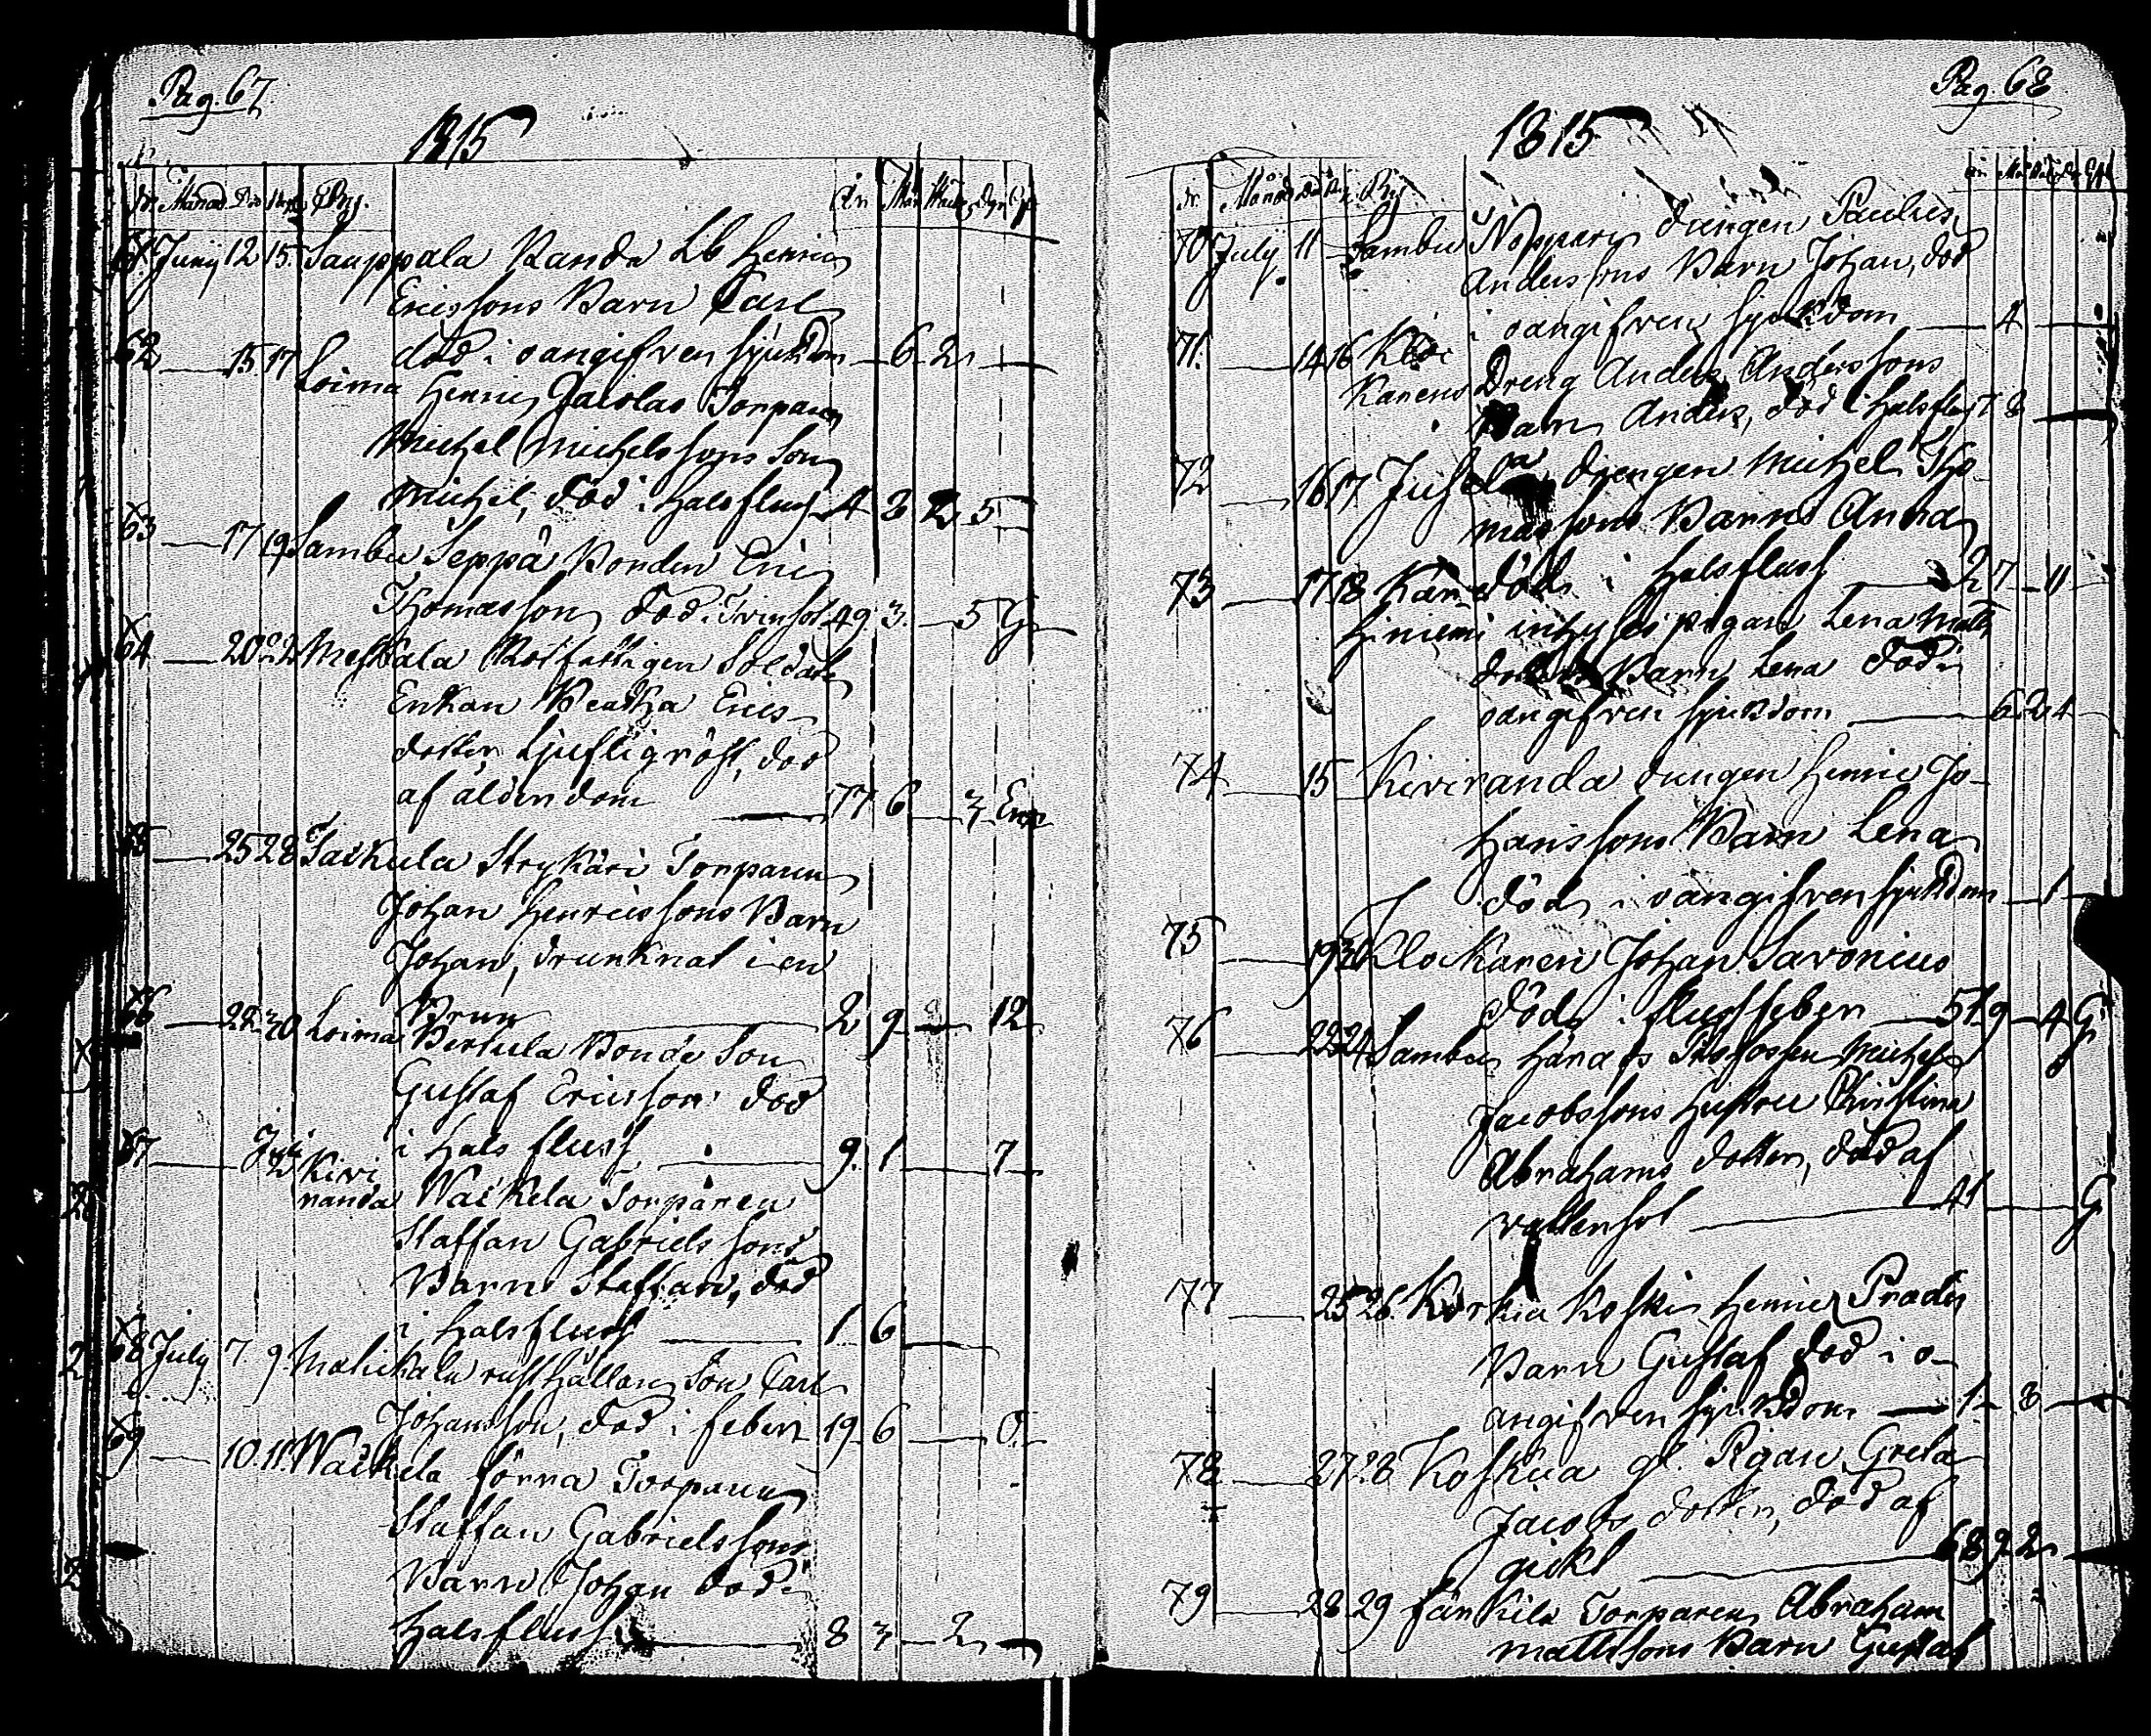 Pag. 67
1815
Månad. Död Begr By.
År Mån Veck Dgr Gft
61 Junij 12 15 Sauppala Randa Lb Henric
Ericssons Barn Carl
död i oangifven sjukdom 6 2
62 15 17 Loima Henric Jacolas Torparen
Michel Michelssons Son
Michel, död i halsfluss 4 3 2 5
63 17 19 Sambu Seppä Bonden Eric
Thomasson död i Tvinsot 49 3 5 G
64 20 22 Meskala Rotfattigen Soldats
Enkan Beatha Erics
dotter Ljufligröst, död
af ålderdom 77 6 3 Enk
65 25 28 Taikula Strykäri Torparen
Johan Henricssons Barn
Johan, drunknat i en
Brun 2 9 12
66 28 30 Loima Bertula Bonde Son
Gustaf Ericsson död
i hals fluss 9 1 7
67 July 2 Kivi
randa Waikela Torparen
Staffan Gabriels sons
Barn Staffan, död
i halsfluss 1 6
68 July 7 9 Mälickala rusthållare Son Carl
Johansson, död i feber 19 6 O.
69 10. 11. Waikela förra Torparen
Staffan Gabrielssons
Barn Johan död i
halsfluss 8 3 2
Pag. 68
1815
Nr Månad Död By
70 July 11 Sambu Noppari drängen Paulus
Anderssons Barn Johan, död
i oangifven sjukdom 4
71. 14 16 Kloc
karens Dreng Anders Anderssons
Barn Anders, död i halsfluss 8
72 16 17 Jusela drengen Michel Tho
massons Barn Anna
död i halsfluss 2 7 11
73 17 18 Kar
hiniemi inhyses pigan Lena Matts
dotters Barn Lena död i
oangifven sjukdom 6 2 4
74 15 Kiviranda drengen Henric Jo-
hanssons Barn Lena
död i oangifven sjukdom 1
75 19 30 Klockaren Johan Savonius
död i flussfeber 51 9 4 G
76 22 24 Sambu härads Profossen Michel
Jacobssons hustru Christina
Abrahams dotter, död af
vattusot 41 G
77 25 26. Korkia koski Henric Prades
Barn Gustaf död i o-
angifven sjukdom 1 8
78 27 28 Koskua gl. Pigan Greta
Jacobs dotter, död af
gickt 68 9 2
79 28 29 Fänkila Torparen Abraham
Mattssons Barn Gustaf